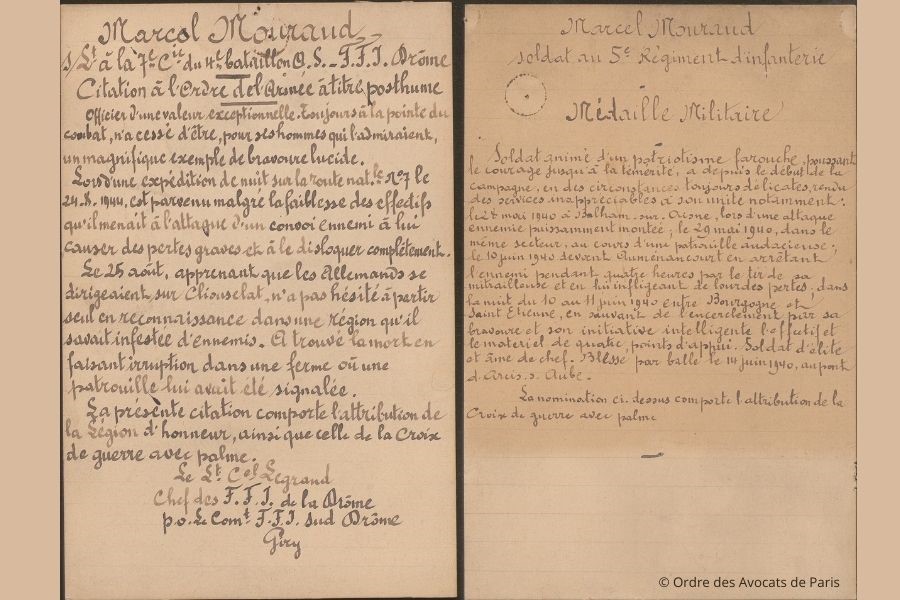 Marcel Mouraud
s/Lt à la 7e Cie du 4e bataillon O.S. - F.F.I. Drôme
Citation à l'Ordre de l'Armée à titre posthume
Officier d'une valeur exceptionnelle. Toujours à la pointe du
combat, n'a cessé d'être, pour ses hommes qui l'admiraient,
un magnifique exemple de bravoure lucide.
Lors d'une expédition de nuit sur la route nat.le N°7 le
24.8.1944, est parvenu malgré la faiblesse des effectifs
qu'il menait à l'attaque d'un convoi ennemi à lui
causer des pertes graves et à le disloquer complètement.
Le 25 août, apprenant que les Allemands se
dirigeaient sur Cliouselat, n'a pas hésité à partir
seul en reconnaissance dans une région qu'il
savait infestée d'ennemis. A trouvé la mort en
faisant irruption dans une ferme où une
patrouille lui avait été signalée.
La présente citation comporte l'attribution de
la Légion d'honneur, ainsi que celle de la Croix
de guerre avec palme.
Le Lt Cel Legrand
Chef des F.F.I. de la Drôme
p.o. Le Comt F.F.I. sud Drôme
Giry
Marcel Mouraud
soldat au 5e Régiment d'infanterie
Médaille Militaire
Soldat animé d'un patriotisme farouche, poussant
le courage jusqu'à la témérité, a depuis le début de la
campagne, en des circonstances toujours délicates, rendu
des services inappréciables à son unité notamment :
le 28 mai 1940 à Balham-sur-Aisne, lors d'une attaque
ennemie puissamment montée ; le 29 mai 1940, dans le
même secteur, au cours d'une patrouille audacieuse ;
le 10 juin 1940 devant Aumenancourt en arrêtant
l'ennemi pendant quatre heures par le tir de sa
mitrailleuse et en lui infligeant de lourdes pertes ; dans
la nuit du 10 au 11 juin 1940 entre Bourgogne et
Saint Etienne, en sauvant de l'encerclement par sa
bravoure et son initiative intelligente l'effectif et
le matériel de quatre points d'appui. Soldat d'élite
et âme de chef. Blessé par balle le 14 juin 1940, au pont
d'Arcis s. Aube.
La nomination ci-dessus comporte l'attribution de la
Croix de guerre avec palme
© Ordre des Avocats de Paris